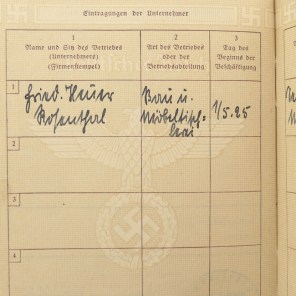 Eintragungen der Unternehmer
1
2
3
Name und Sitz des Betriebes
(Unternehmers)
(Firmenstempel)
Art des Betriebes
oder der
Betriebsabteilung
Tag des
Beginns der
Beschäftigung
1
Fried. Heuer
Rosenthal
Bau u.
Möbeltisch-
lerei
1/5.25
2
3
4